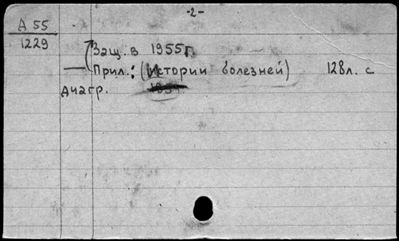 -2-
А 55
1229
Защ. в 1955 г.
Прил.: (Истории болезней) 128 л. с
диагр.